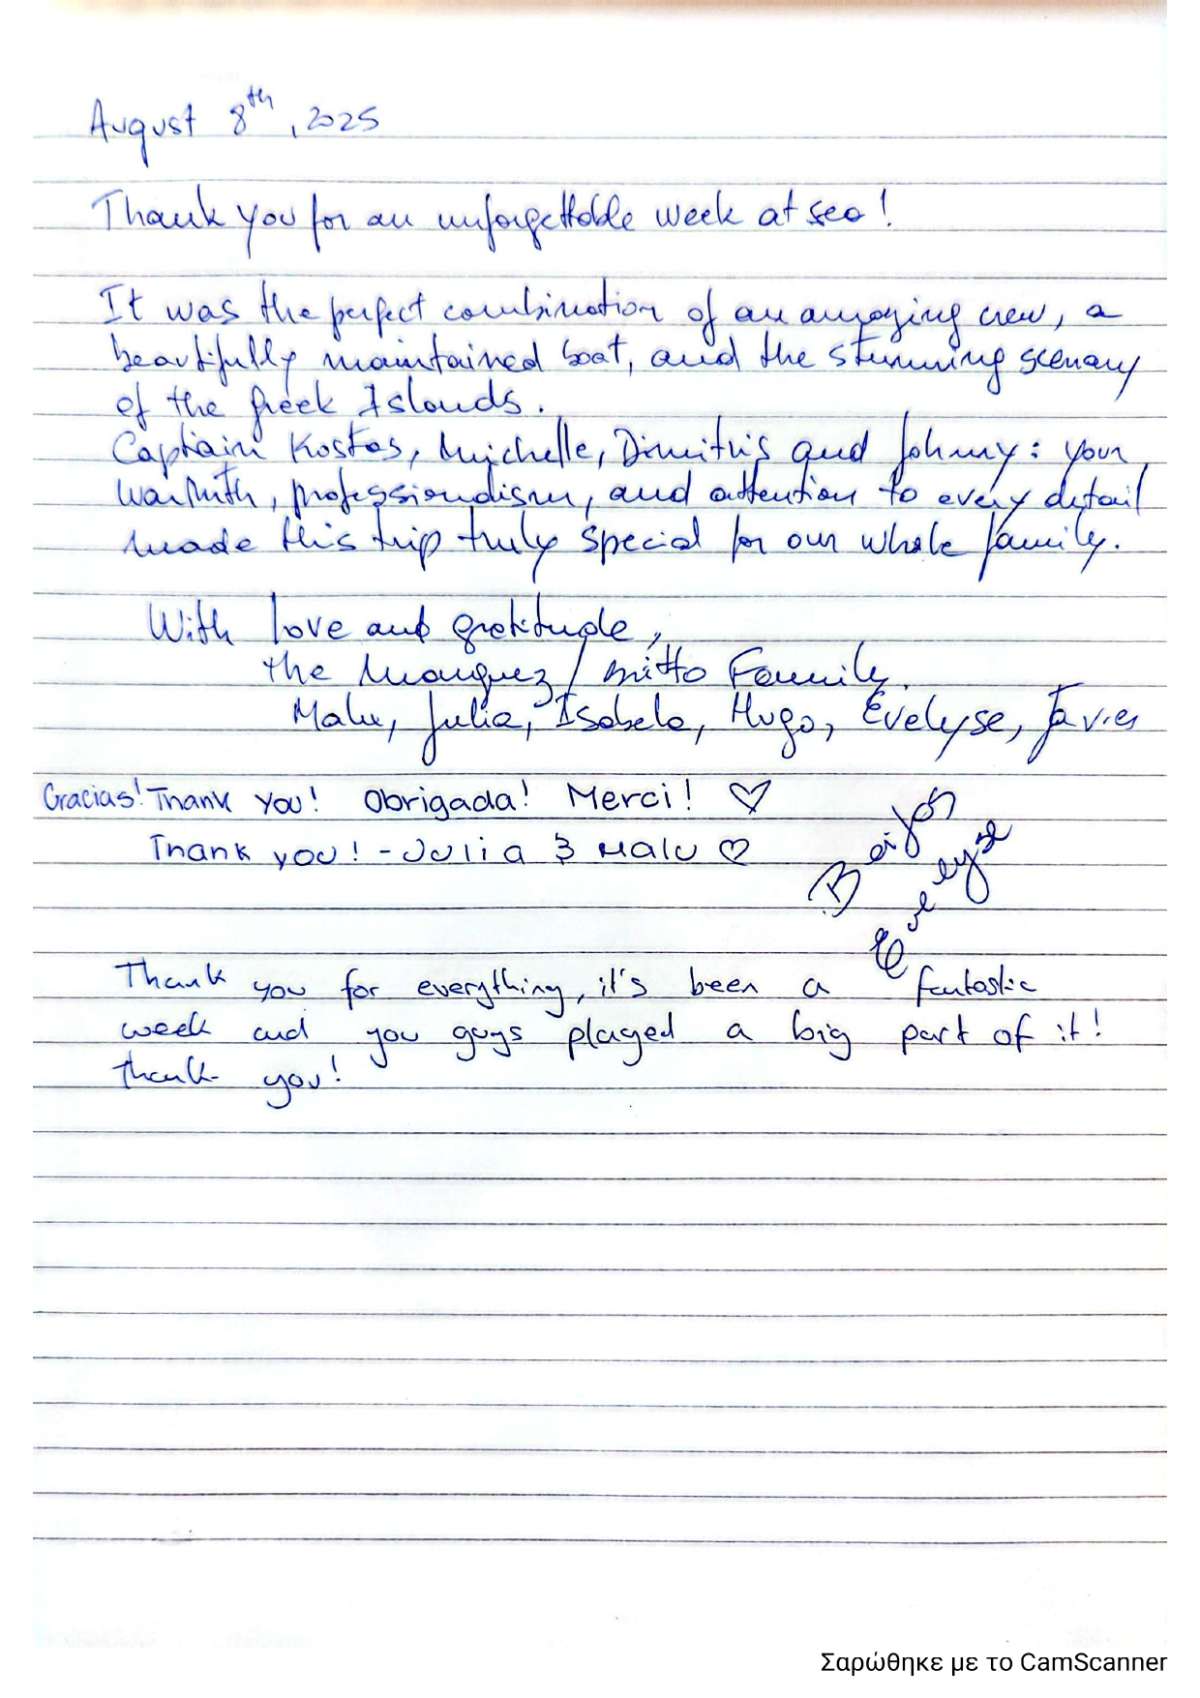 August 8th, 2025
Thank you for an unforgettable week at sea!
It was the perfect combination of an amazing crew, a
beautifully maintained boat, and the stunning scenary
of the Greek Islands.
Captain Kostas, Michelle, Dimitris and Johnny: your
warmth, professionalism, and attention to every detail
made this trip truly special for our whole family.
With love and gratitude,
the Marquez / Britto Family.
Malu, Julia, Isabela, Hugo, Evelyse, Javier
Gracias! Thank you! Obrigada! Merci! ♡
Thank you! - Julia & Malu ♡
Beijos
Evelyse
Thank you for everything, it's been a fantastic
week and you guys played a big part of it!
Thank you!
Σαρώθηκε με το CamScanner